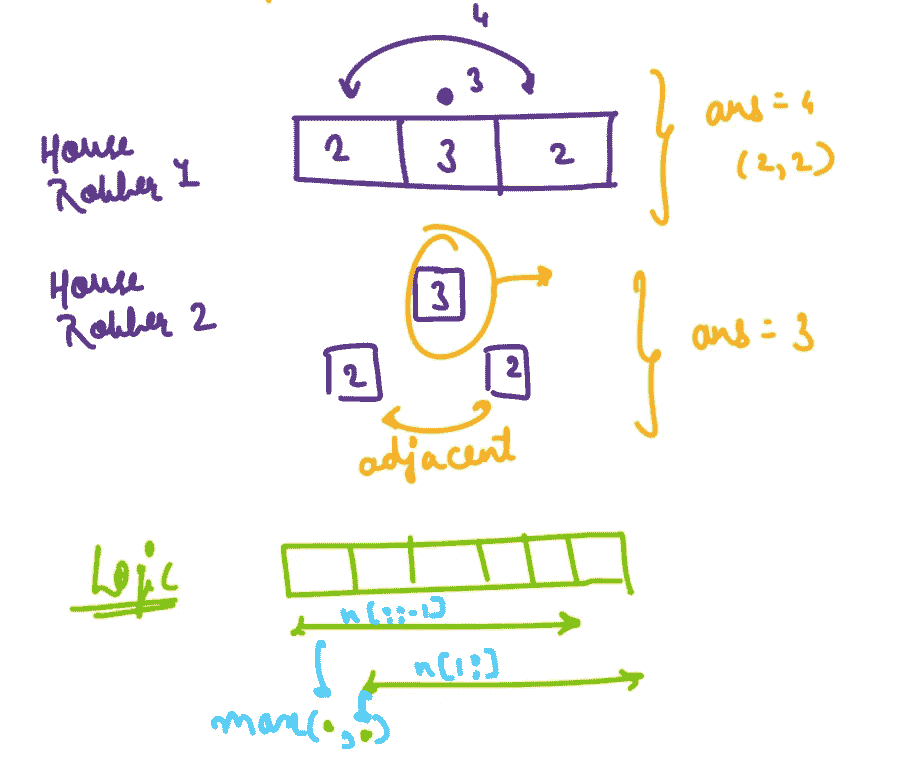 4
3
House
Robber 1
2 3 2
ans = 4
(2,2)
House
Robber 2
3
2 2
ans = 3
adjacent
Logic
n[::-1]
n[1:]
max(·,·)